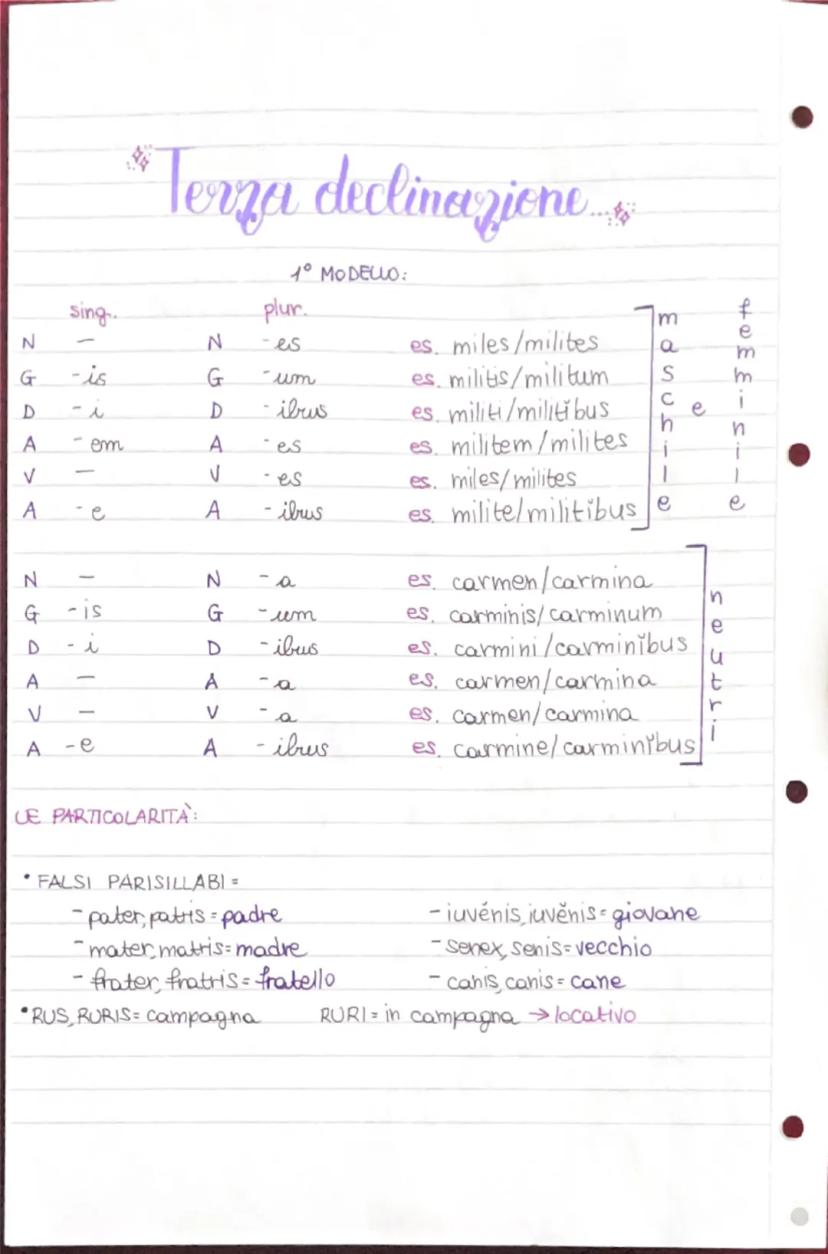 Terza declinazione...
1° MODELLO:
sing. plur.
N – N -es es. miles/milites
G -is G -um es. militis/militum
D -i D -ibus es. militi/militĭbus
A -em A -es es. militem/milites
V – V -es es. miles/milites
A -e A -ibus es. milite/militĭbus
maschile e femminile
N – N -a es. carmen/carmina
G -is G -um es. carminis/carminum
D -i D -ibus es. carmini/carminĭbus
A – A -a es. carmen/carmina
V – V -a es. carmen/carmina
A -e A -ibus es. carmine/carminĭbus
neutri
LE PARTICOLARITÀ:
• FALSI PARISILLABI =
- pater, patris = padre - iuvénis, iuvĕnis = giovane
- mater, matris = madre - senex, senis = vecchio
- frater, fratris = fratello - canis, canis = cane
• RUS, RURIS = campagna RURI = in campagna → locativo